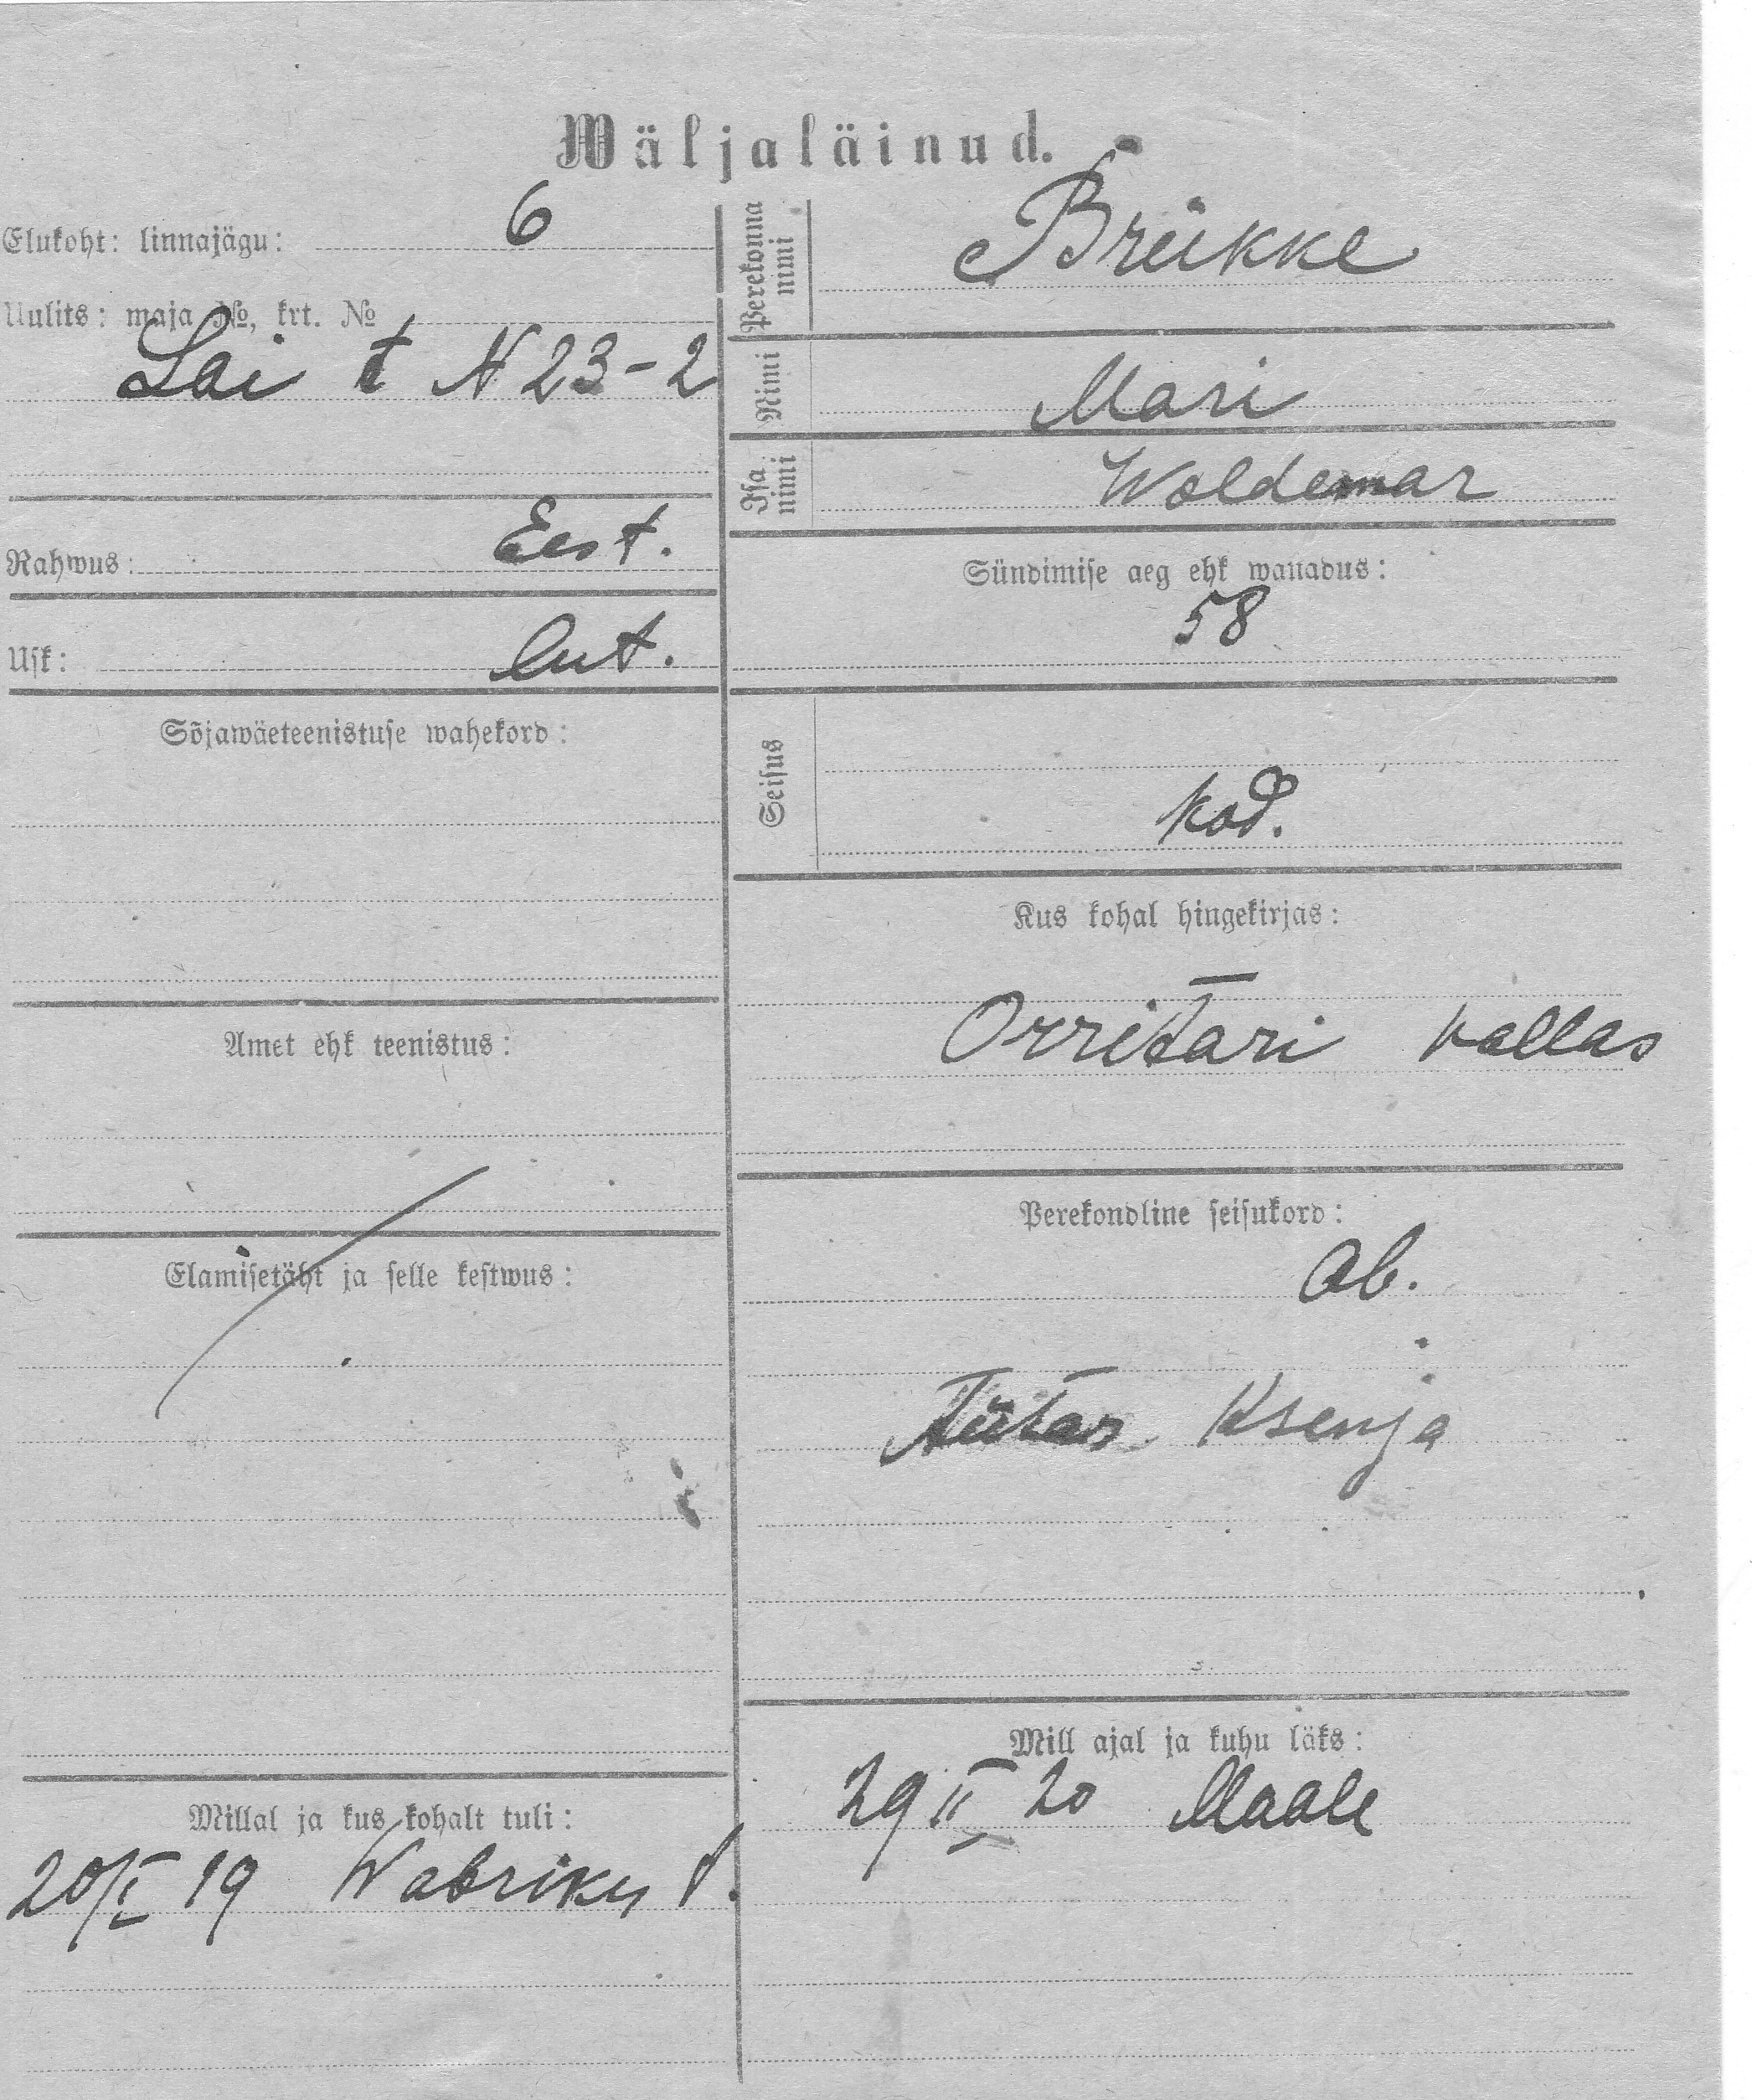 Wäljaläinud.
Elukoht: linnajägu: 6
Uulits: maja №, krt. №
Lai t N 23-2
Rahwus: Eest.
Usk: lut.
Sõjawäeteenistuse wahekord:
Amet ehk teenistus:
Elamisetäht ja selle kestwus:
Millal ja kus kohalt tuli:
20/I 19 Wabriku t.
Perekonna nimi Brükke
Nimi Mari
Isa nimi Woldemar
Sündimise aeg ehk wanadus:
58
Seisus
kod.
Kus kohal hingekirjas:
Orritari vallas
Perekondline seisukord:
Ab.
Tütar Ksenja
Mill ajal ja kuhu läks:
29 II 20 Maale